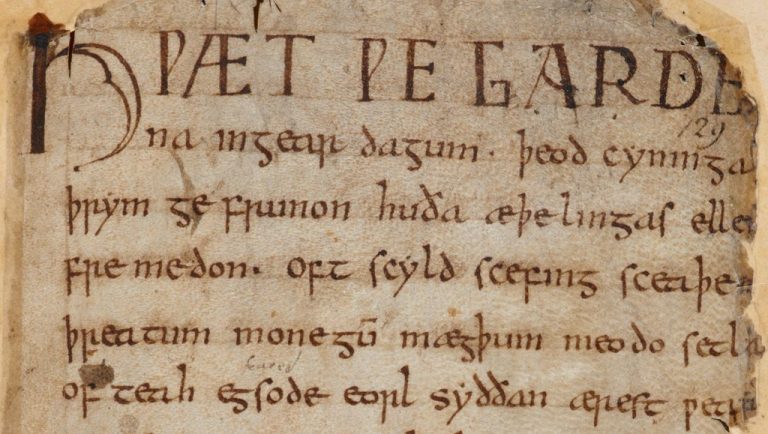 HǷÆT ǷE GARDE
129
na ingear dagum · þeod cyninga
þrym ge frunon huða æþelingas elle
fre medon · oft scyld scefing sceaþe
þreatum monegū mægþum meodo setla
of teah egsode eorl syððan ærest ƿear